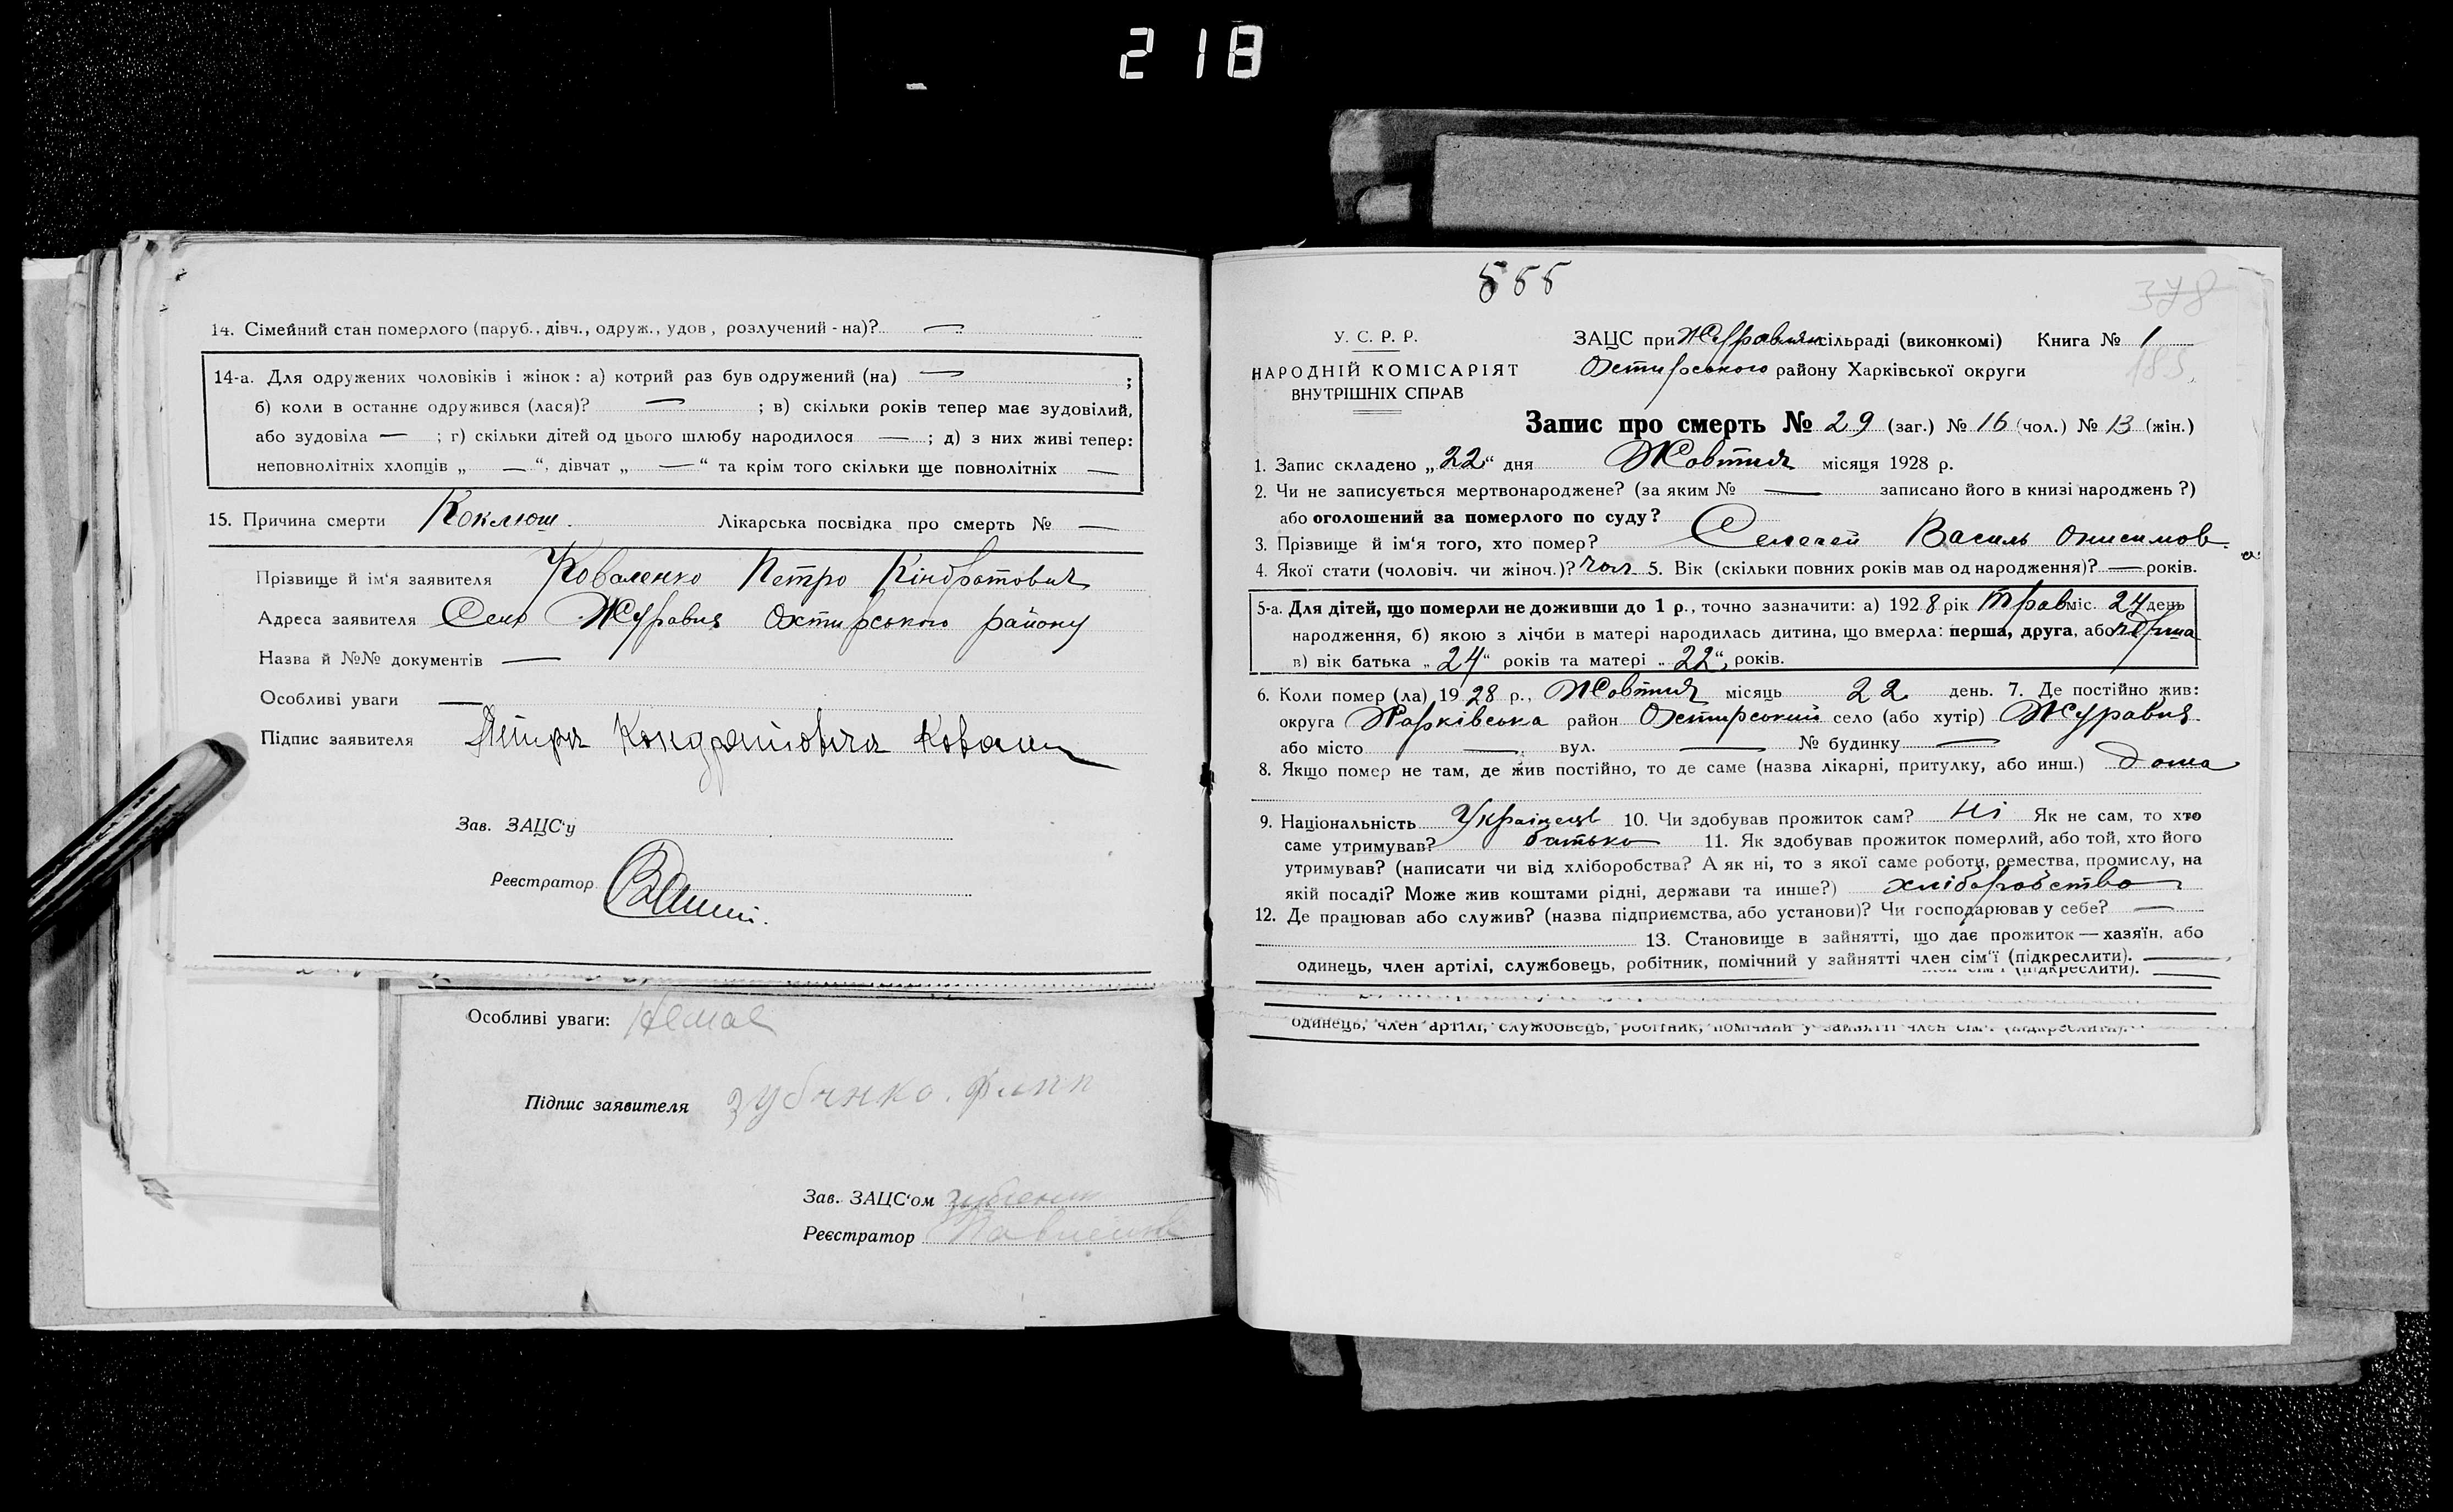 218
14. Сімейний стан померлого (паруб., дівч., одруж., удов, розлучений-на)? —
14-а. Для одружених чоловіків і жінок: а) котрий раз був одружений (на) — ;
б) коли в останнє одружився (лася)? — ; в) скільки років тепер має зудовілий,
або зудовіла — ; г) скільки дітей од цього шлюбу народилося — ; д) з них живі тепер:
неповнолітніх хлопців „ — “, дівчат „ — “ та крім того скільки ще повнолітніх —
15. Причина смерти Коклюш. Лікарська посвідка про смерть № —
Прізвище й ім'я заявителя Коваленко Петро Кіндратович
Адреса заявителя Село Журавня Охтирського району
Назва й №№ документів —
Особливі уваги —
Підпис заявителя Кондратовича
Зав. ЗАЦС'у
Реєстратор
Особливі уваги: Немає
Підпис заявителя
Зав. ЗАЦС'ом
Реєстратор
555
378
185
У. С. Р. Р.
НАРОДНІЙ КОМІСАРІЯТ
ВНУТРІШНІХ СПРАВ
ЗАЦС при Журавлян сільраді (виконкомі) Книга № 1
Охтирського району Харківської округи
Запис про смерть № 29 (заг.) № 16 (чол.) № 13 (жін.)
1. Запис складено „22“ дня Жовтня місяця 1928 р.
2. Чи не записується мертвонароджене? (за яким № — записано його в книзі народжень?)
або оголошений за померлого по суду?
3. Прізвище й ім'я того, хто помер? Василь Онисимов.
4. Якої стати (чоловіч. чи жіноч.)? чол. 5. Вік (скільки повних років мав од народження)? — років.
5-а. Для дітей, що померли не доживши до 1 р., точно зазначити: а) 1928 рік Трав міс. 24 день
народження, б) якою з лічби в матері народилась дитина, що вмерла: перша, друга, або перша
в) вік батька „24“ років та матері „22“ років.
6. Коли помер (ла) 1928 р., Жовтня місяць 22 день. 7. Де постійно жив:
округа Харківська район Охтирський село (або хутір) Журавня.
або місто — вул. — № будинку —
8. Якщо помер не там, де жив постійно, то де саме (назва лікарні, притулку, або инш.) дома
9. Національність Українець 10. Чи здобував прожиток сам? Ні Як не сам, то хто
саме утримував? батько 11. Як здобував прожиток померлий, або той, хто його
утримував? (написати чи від хліборобства? А як ні, то з якої саме роботи, ремества, промислу, на
якій посаді? Може жив коштами рідні, держави та инше?) хліборобство
12. Де працював або служив? (назва підприємства, або установи)? Чи господарював у себе? —
13. Становище в зайнятті, що дає прожиток — хазяїн, або
одинець, член артілі, службовець, робітник, помічний у зайнятті член сім'ї (підкреслити). —
член сім'ї (підкреслити).
одинець, член артілі, службовець, робітник, помічний у зайнятті член сім'ї (підкреслити).